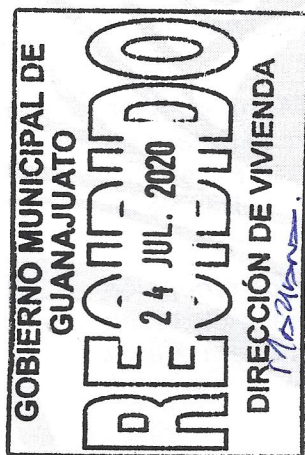 GOBIERNO MUNICIPAL DE
GUANAJUATO
RECIBIDO
24 JUL. 2020
DIRECCIÓN DE VIVIENDA